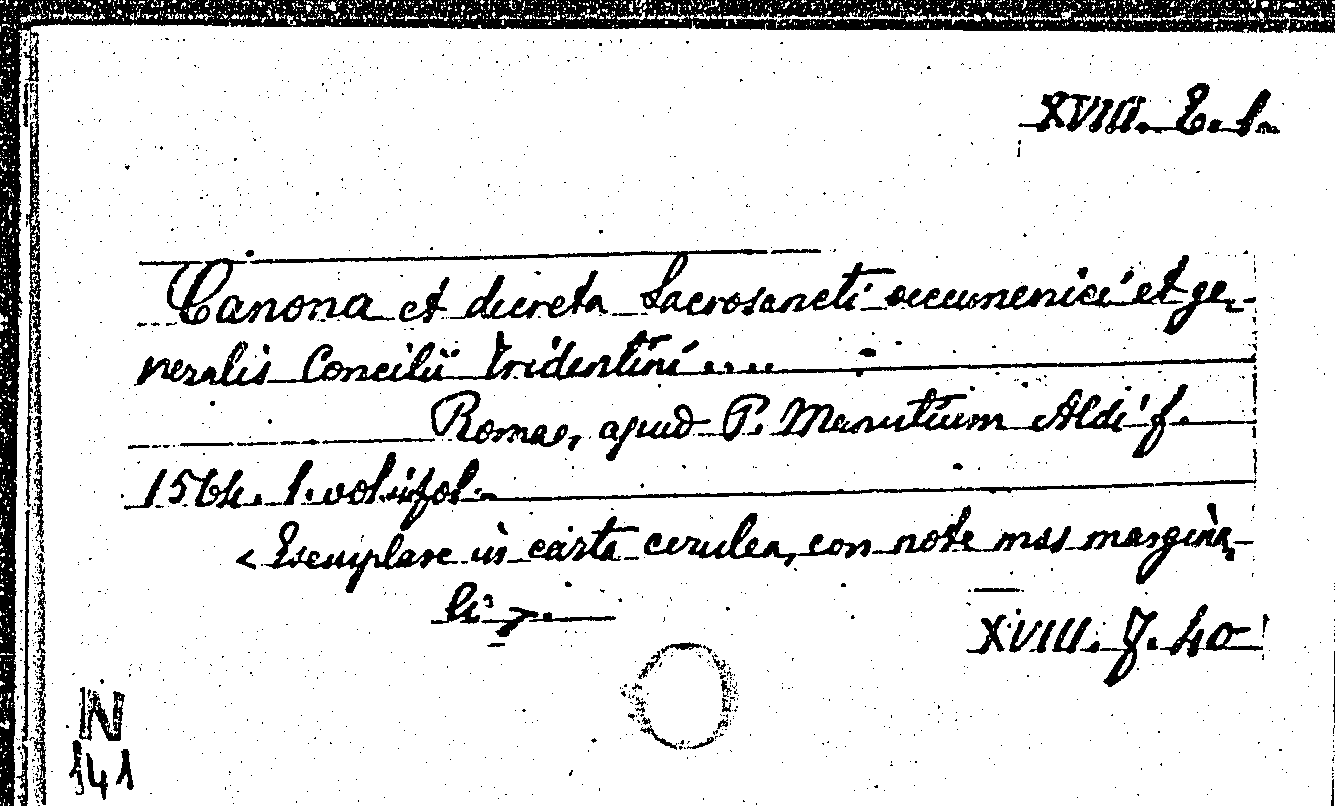 XVIII. E. 1.
Canona et decreta Sacrosancti oecumenici et ge-
neralis Concilii tridentini ....
Romae, apud P. Manutium Aldi f.
1564. 1. vol. in fol. -
< Esemplare in carta cerulea, con note mas margina-
li >. -
XVIII. J. 40
N
141